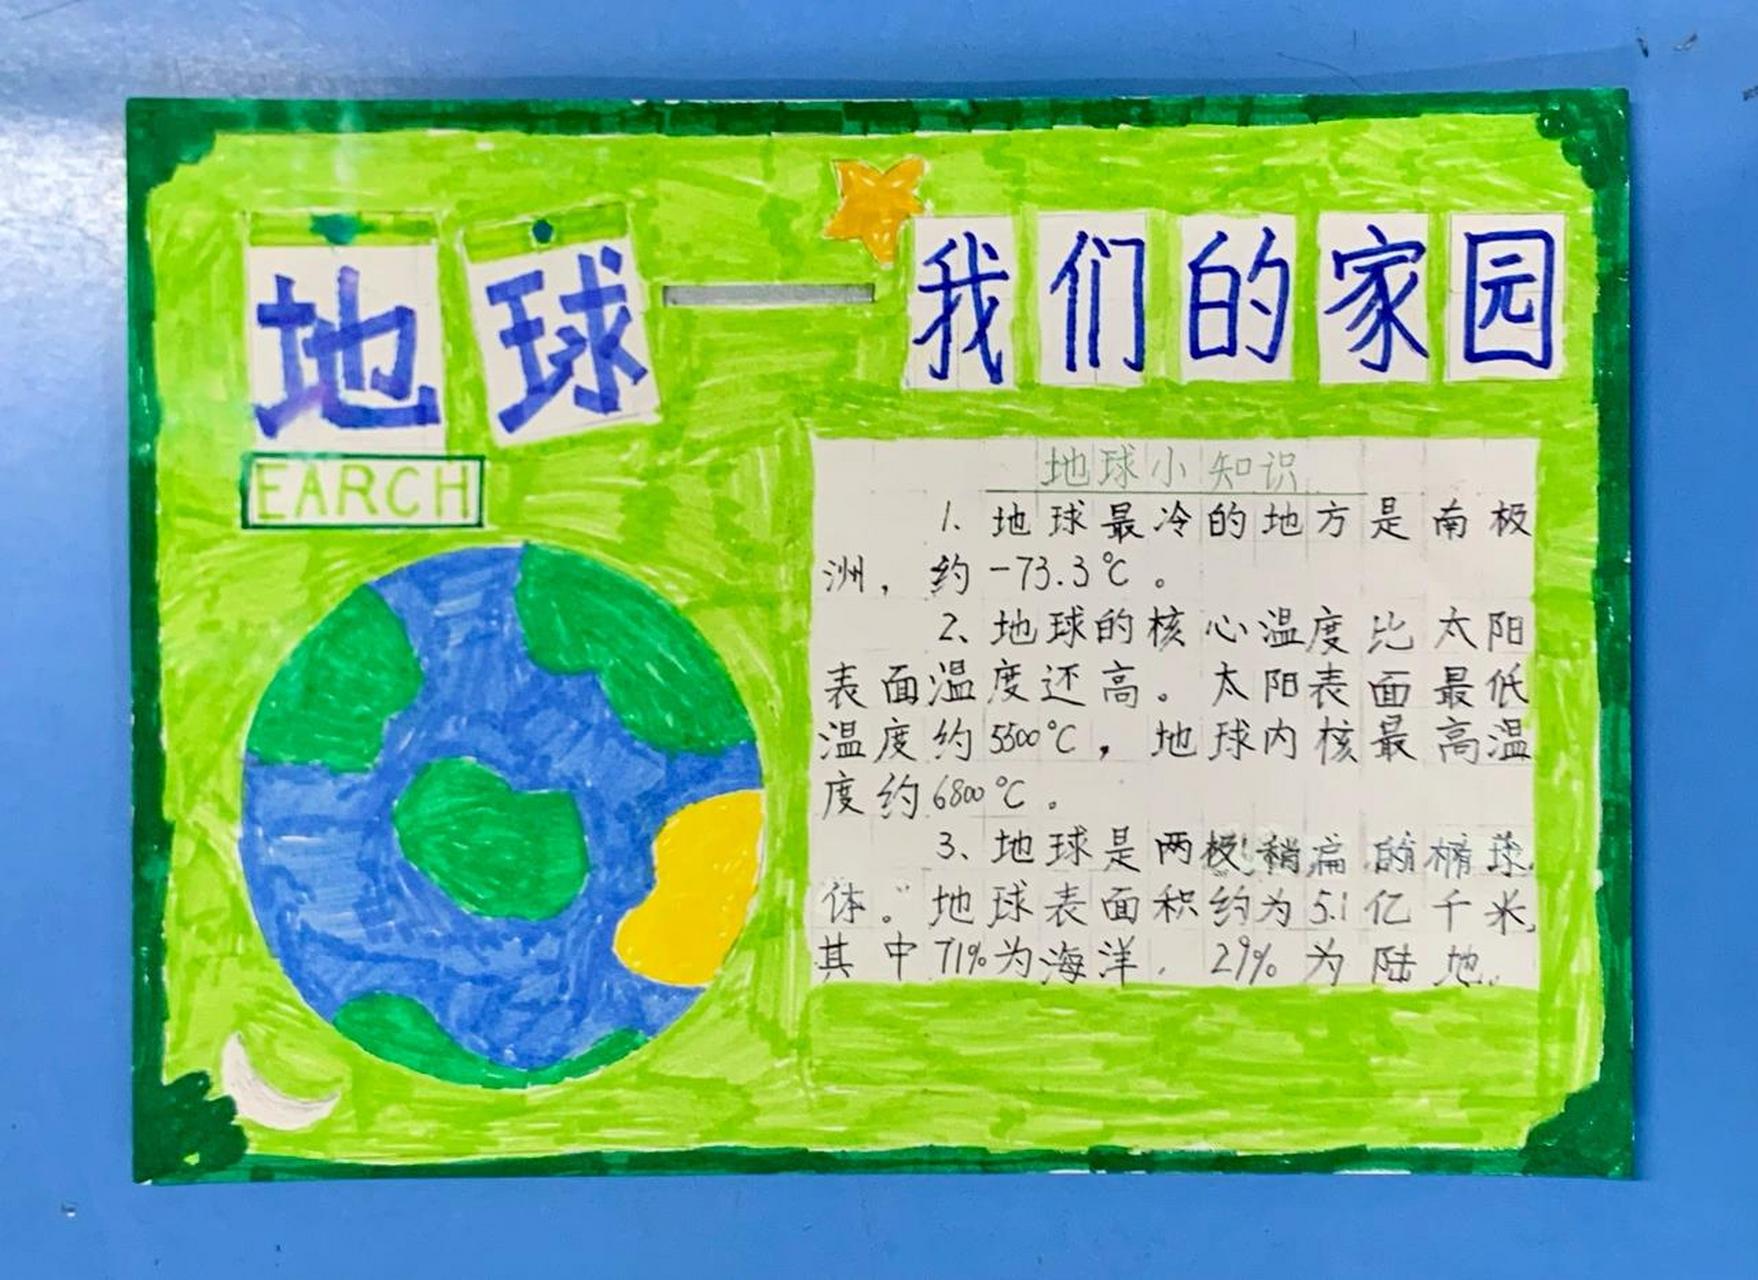 地球——我们的家园
EARCH
地球小知识
1. 地球最冷的地方是南极
洲，约-73.3℃。
2、地球的核心温度比太阳
表面温度还高。太阳表面最低
温度约5500℃，地球内核最高温
度约6800℃。
3、地球是两极稍扁的椭球
体。地球表面积约为5.1亿千米，
其中71%为海洋，29%为陆地。